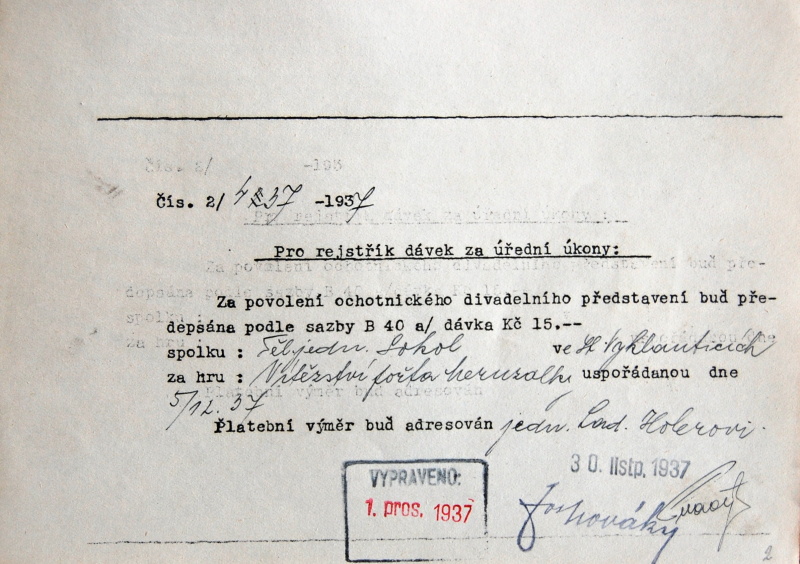 Čís. 2/ -1937
Pro rejstřík dávek za úřední úkony:
Za povolení ochotnického divadelního představení buď pře-
depsána podle sazby B 40 a/ dávka Kč 15.--
spolku : Těl. jedn. Sokol ve St Vyklanticích
za hru : Vítězství uspořádanou dne
5/12. 37
Platební výměr buď adresován jedn. Lad. Holerovi.
30. listp. 1937
VYPRAVENO:
1. pros. 1937
2